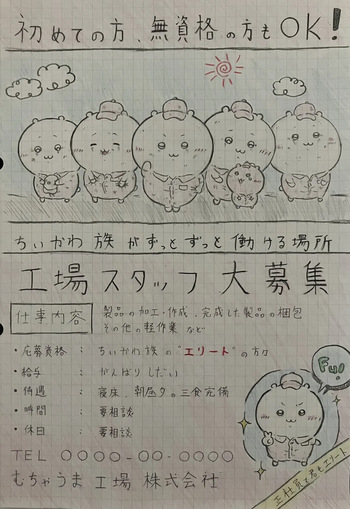 初めての方、無資格の方もOK!
ちいかわ族がずっとずっと働ける場所
工場スタッフ大募集
仕事内容
製品の加工・作成、完成した製品の梱包
その他の軽作業 など
・応募資格 : ちいかわ族の"エリート"の方々
・給与 : がんばりしだい
・待遇 : 寝床、朝昼夕の三食完備
・時間 : 要相談
・休日 : 要相談
TEL 〇〇〇〇-〇〇-〇〇〇〇
むちゃうま工場 株式会社
Fu!
正社員で君もエリート